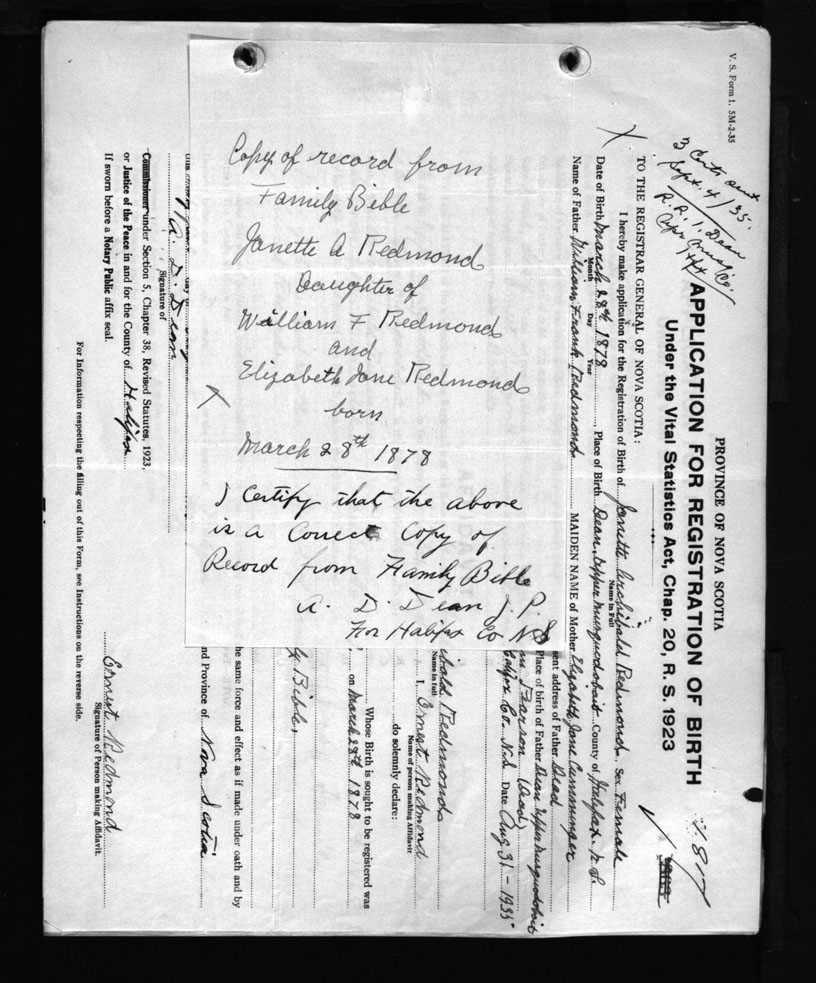 Copy of record from
Family Bible
Janette A Redmond
Daughter of
William F Redmond
and
Elizabeth Jane Redmond
born
March 28th 1878
I Certify that the above
is a Correct Copy of
Record from Family Bible
A. D. Dean J. P.
For Halifax Co N S
V. S. Form 1. 5M-2-35
Sept. 4/35.
R. R. 1. Dean
PROVINCE OF NOVA SCOTIA
APPLICATION FOR REGISTRATION OF BIRTH
Under the Vital Statistics Act, Chap. 20, R. S. 1923
TO THE REGISTRAR GENERAL OF NOVA SCOTIA:
I hereby make application for the Registration of Birth of Janette Archibald Redmond Sex Female
Name in Full
Date of Birth March 28th 1878 Place of Birth Dean, Upper Musquodoboit County of Halifax. N. S.
Month Day Year
Name of Father William Frank Redmond MAIDEN NAME of Mother Elizabeth Jane Cumminger
ent address of Father Dead
Place of birth of Father Dean Upper Musquodoboit
Pearson (Dead)
Halifax Co. N.S. Date Aug 31 - 1935
ibald Redmond
Name in full
I, Ernest Redmond
Name of person making Affidavit
do solemnly declare:
Whose Birth is sought to be registered was
on March 28th 1878
ly Bible,
he same force and effect as if made under oath and by
nd Province of Nova Scotia
A. D. Dean
Signature of
Commissioner under Section 5, Chapter 38, Revised Statutes, 1923,
or Justice of the Peace in and for the County of Halifax
If sworn before a Notary Public affix seal.
Ernest Redmond
Signature of Person making Affidavit.
For Information respecting the filling out of this Form, see Instructions on the reverse side.